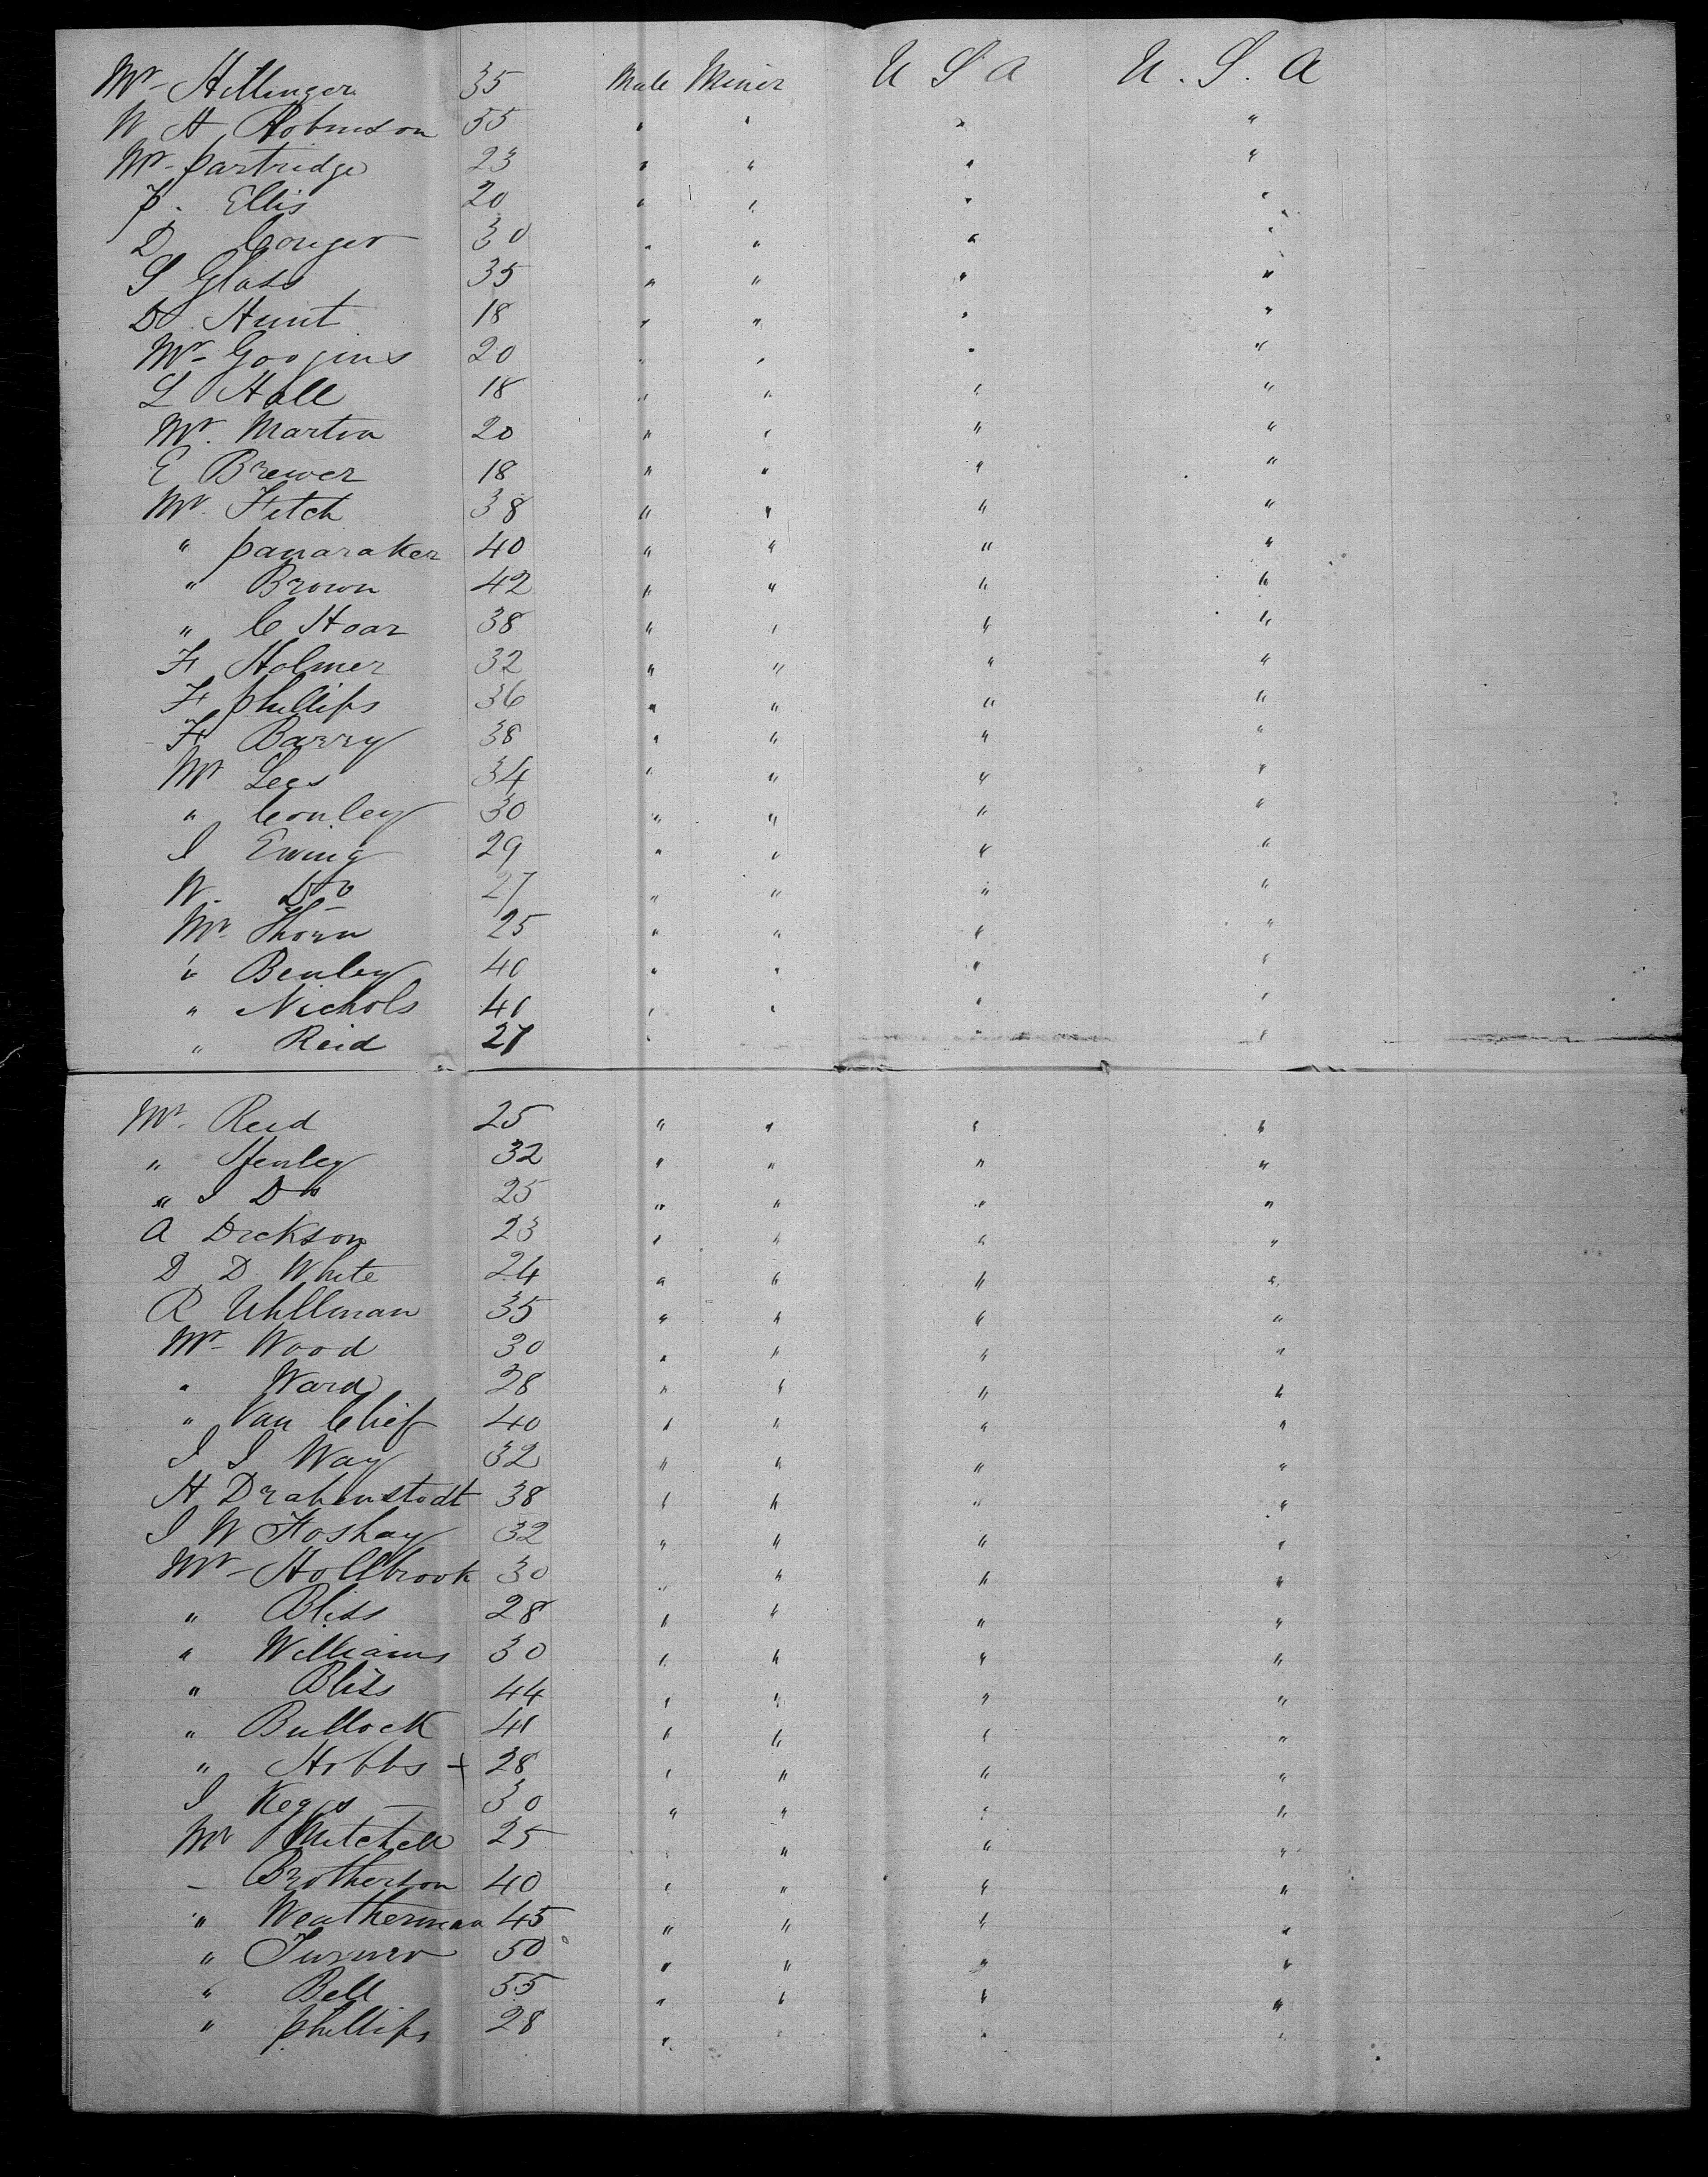 Mr - Hillinger 35 Male Miner U S A U. S. A
W H Robinson 55 " " " "
Mr - partridge 23 " " " "
P. Ellis 20 " " " "
D Conger 30 " " " "
S Glass 35 " " " "
D Hunt 18 " " " "
Mr - Googins 20 " " " "
L Hall 18 " " " "
Mr. Martin 20 " " " "
E Brewer 18 " " " "
Mr. Fitch 38 " " " "
" panaraker 40 " " " "
" Brown 42 " " " "
" C Hoar 38 " " " "
F Holmer 32 " " " "
F phillips 36 " " " "
F Barry 38 " " " "
Mr Lees 34 " " " "
" Conley 30 " " " "
J Ewing 29 " " " "
W. Do 27 " " " "
Mr. Thorn 25 " " " "
" Benley 40 " " " "
" Nichols 40 " " " "
" Reid 27 " " "
Mr. Reid 25 " " " "
" Henley 32 " " " "
" J Do 25 " " " "
A Dickson 23 " " " "
D. D. White 24 " " " "
R Uhllman 35 " " " "
Mr - Wood 30 " " " "
" Ward 28 " " " "
" Van Clief 40 " " " "
J J Way 32 " " " "
H Drabenstodt 38 " " " "
J W Foshay 32 " " " "
Mr - Hollbrook 30 " " " "
" Bliss 28 " " " "
" Williams 30 " " " "
" Bliss 44 " " " "
" Bullock 41 " " " "
" Hobbs + 28 " " " "
J Keggs - 30 " " " "
Mr Mitchell 25 " " " "
- Brotherton 40 " " " "
" Weatherman 45 " " " "
" Turner 50 " " " "
" Bell 55 " " " "
" phillips 28 " " " "